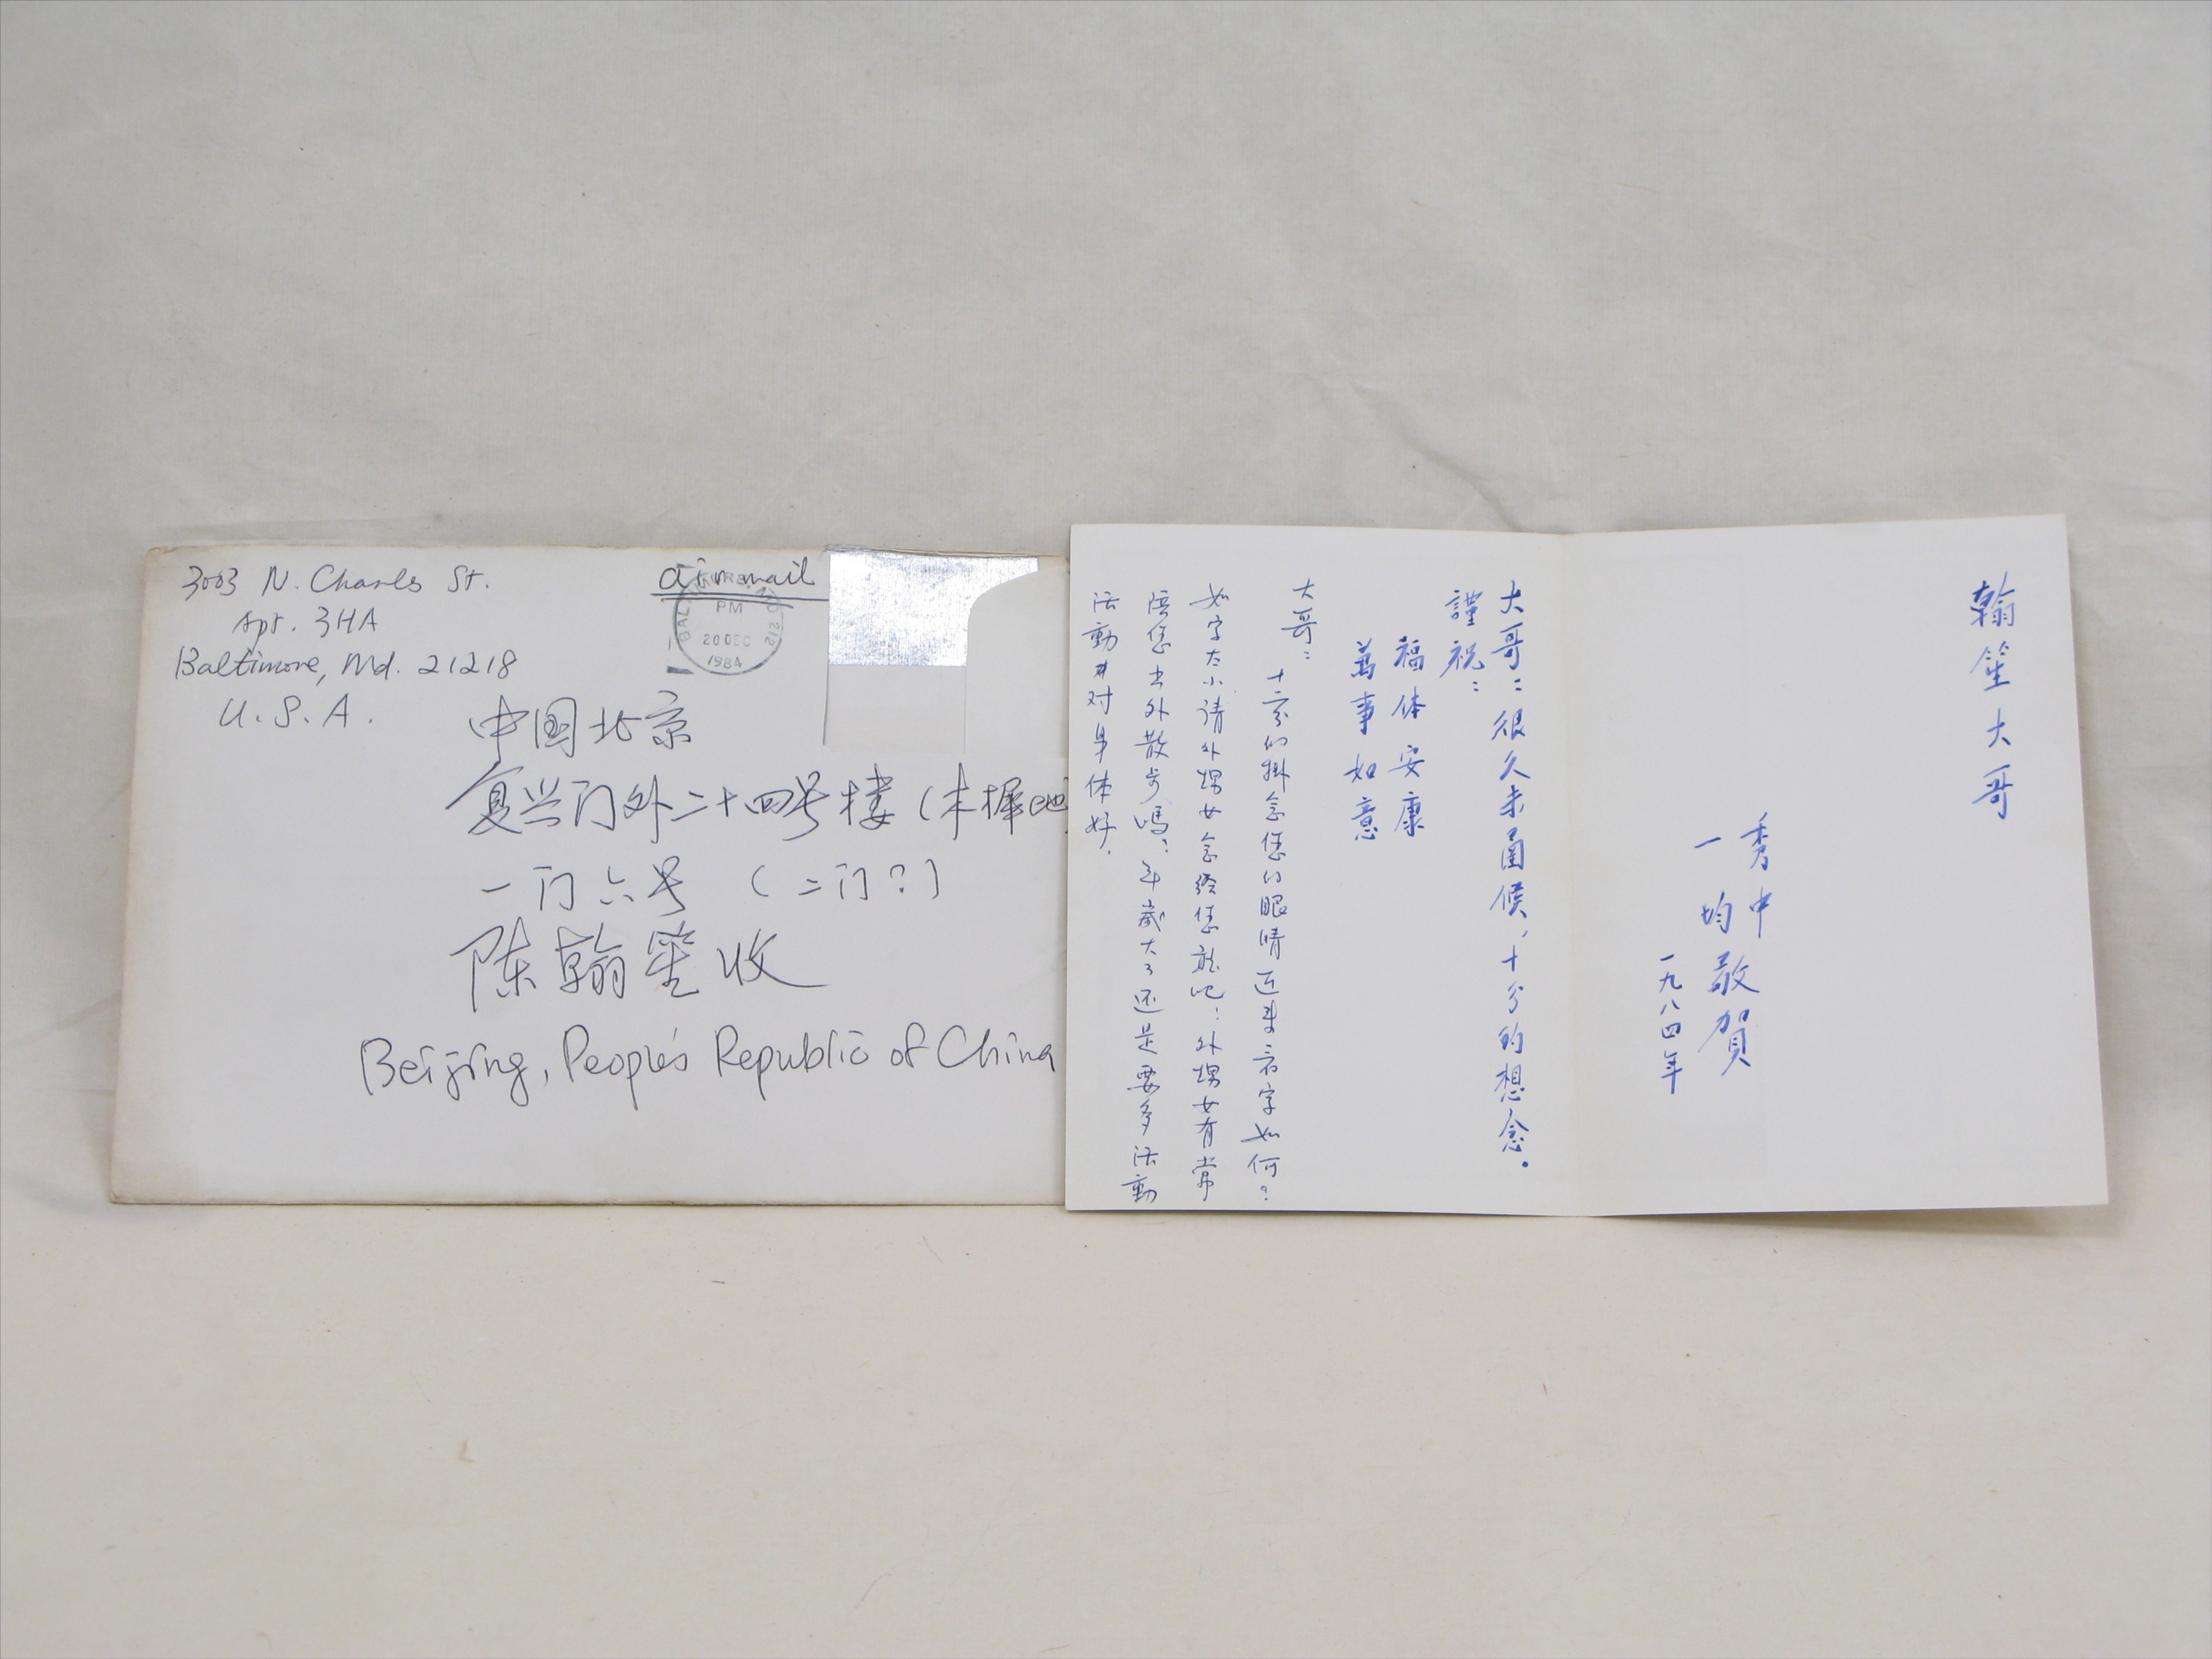 3003 N. Charles St.
Apt. 3HA
Baltimore, Md. 21218
U.S.A.
air mail
BALTIMORE MD 212
PM
20 DEC
1984
中国北京
复兴门外二十四号楼（木樨地
一门六号（二门？）
陈翰笙收
Beijing, People's Republic of China
翰笙大哥
秀中
一均
敬賀
一九八四年
大哥：很久未函候，十分的想念。
謹祝：
福体安康
萬事如意
大哥：
十二分的掛念您的眼睛近来看字如何？
如字太小，请外甥女念给您听吧：外甥女有常
陪您出外散步嗎：年歲大了还是要多活動
活動才对身体好.